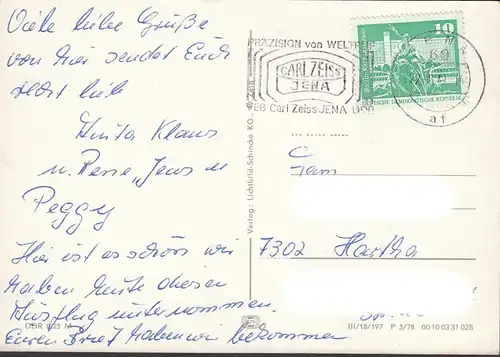 Viele liebe Grüße
von hier sendet Euch
recht lieb
Anita Klaus
u. Rene, Jens u.
Peggy
Hier ist es schön wir
haben heute diesen
Ausflug unternommen.
Euren Brief haben wir bekommen
DDR 0,25 M
Verlag: Lichtbild-Schincke KG,
PRÄZISION von WELTRUF
CARL ZEISS
JENA
VEB Carl Zeiss JENA DDR
10
DEUTSCHE DEMOKRATISCHE REPUBLIK
af
Fam
7302 Hartha
III/18/197 P 3/78 00 10 03 31 025